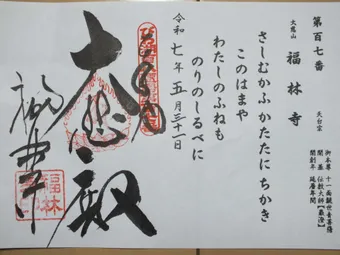 第百七番
大慈山
福林寺
天台宗
御本尊 十一面観世音菩薩
開基 伝教大師【最澄】
開創年 延暦年間
さしむかふ かたたに ちかき
このはまや
わたしのふねも
のりのしるべに
令和七年五月三十一日
大慈殿
福林寺